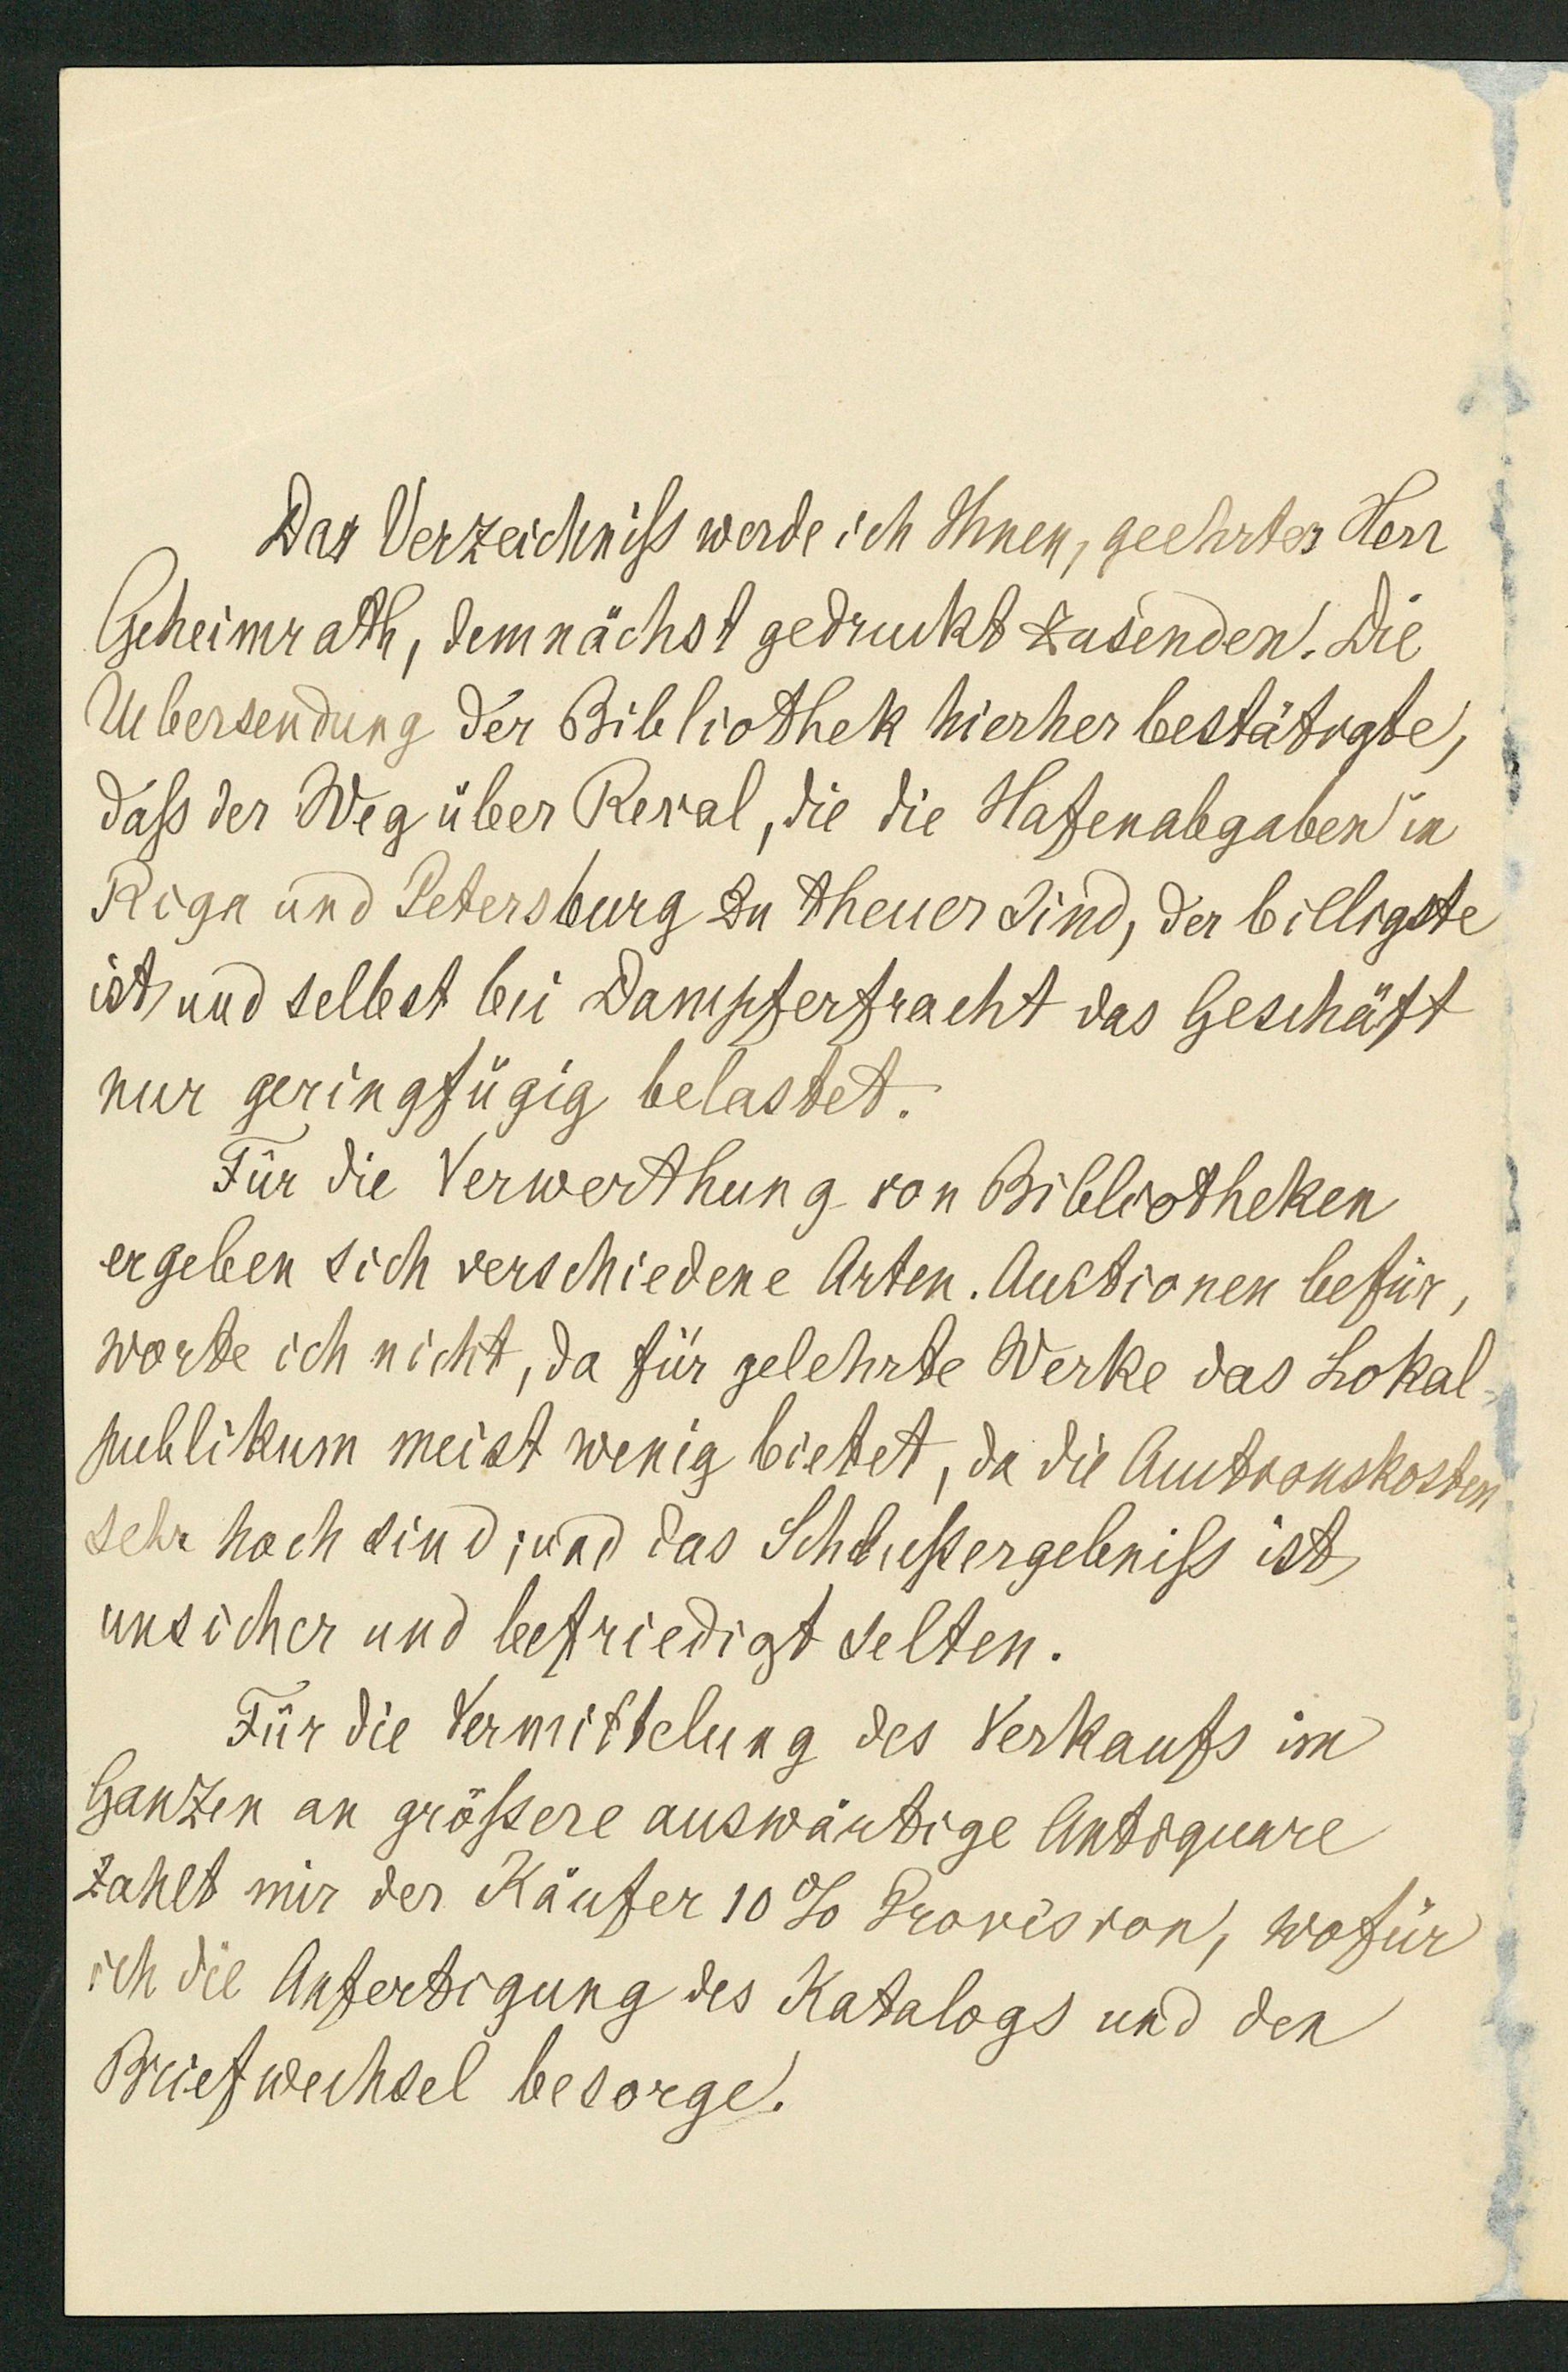 Das Verzeichniss werde ich Ihnen, geehrter Herr
Geheimrath, demnächst gedruckt zusenden. Die
Uebersendung der Bibliothek hierher bestätigte,
dass der Weg über Reval, die die Hafenabgaben in
Riga und Petersburg zu theuer sind, der billigste
ist, und selbst bei Dampferfracht das Geschäft
nur geringfügig belastet.
Für die Verwerthung von Bibliotheken
ergeben sich verschiedene Arten. Auctionen befür,
worte ich nicht, da für gelehrte Werke das Lokal-
publikum meist wenig bietet, da die Auctionskosten
sehr hoch sind; und das Schlussergebniss ist
unsicher und befriedigt selten.
Für die Vermittelung des Verkaufs im
Ganzen an grössere auswärtige Antiquare
zahlt mir der Käufer 10 % Provision, wofür
ich die Anfertigung des Katalogs und den
Briefwechsel besorge.